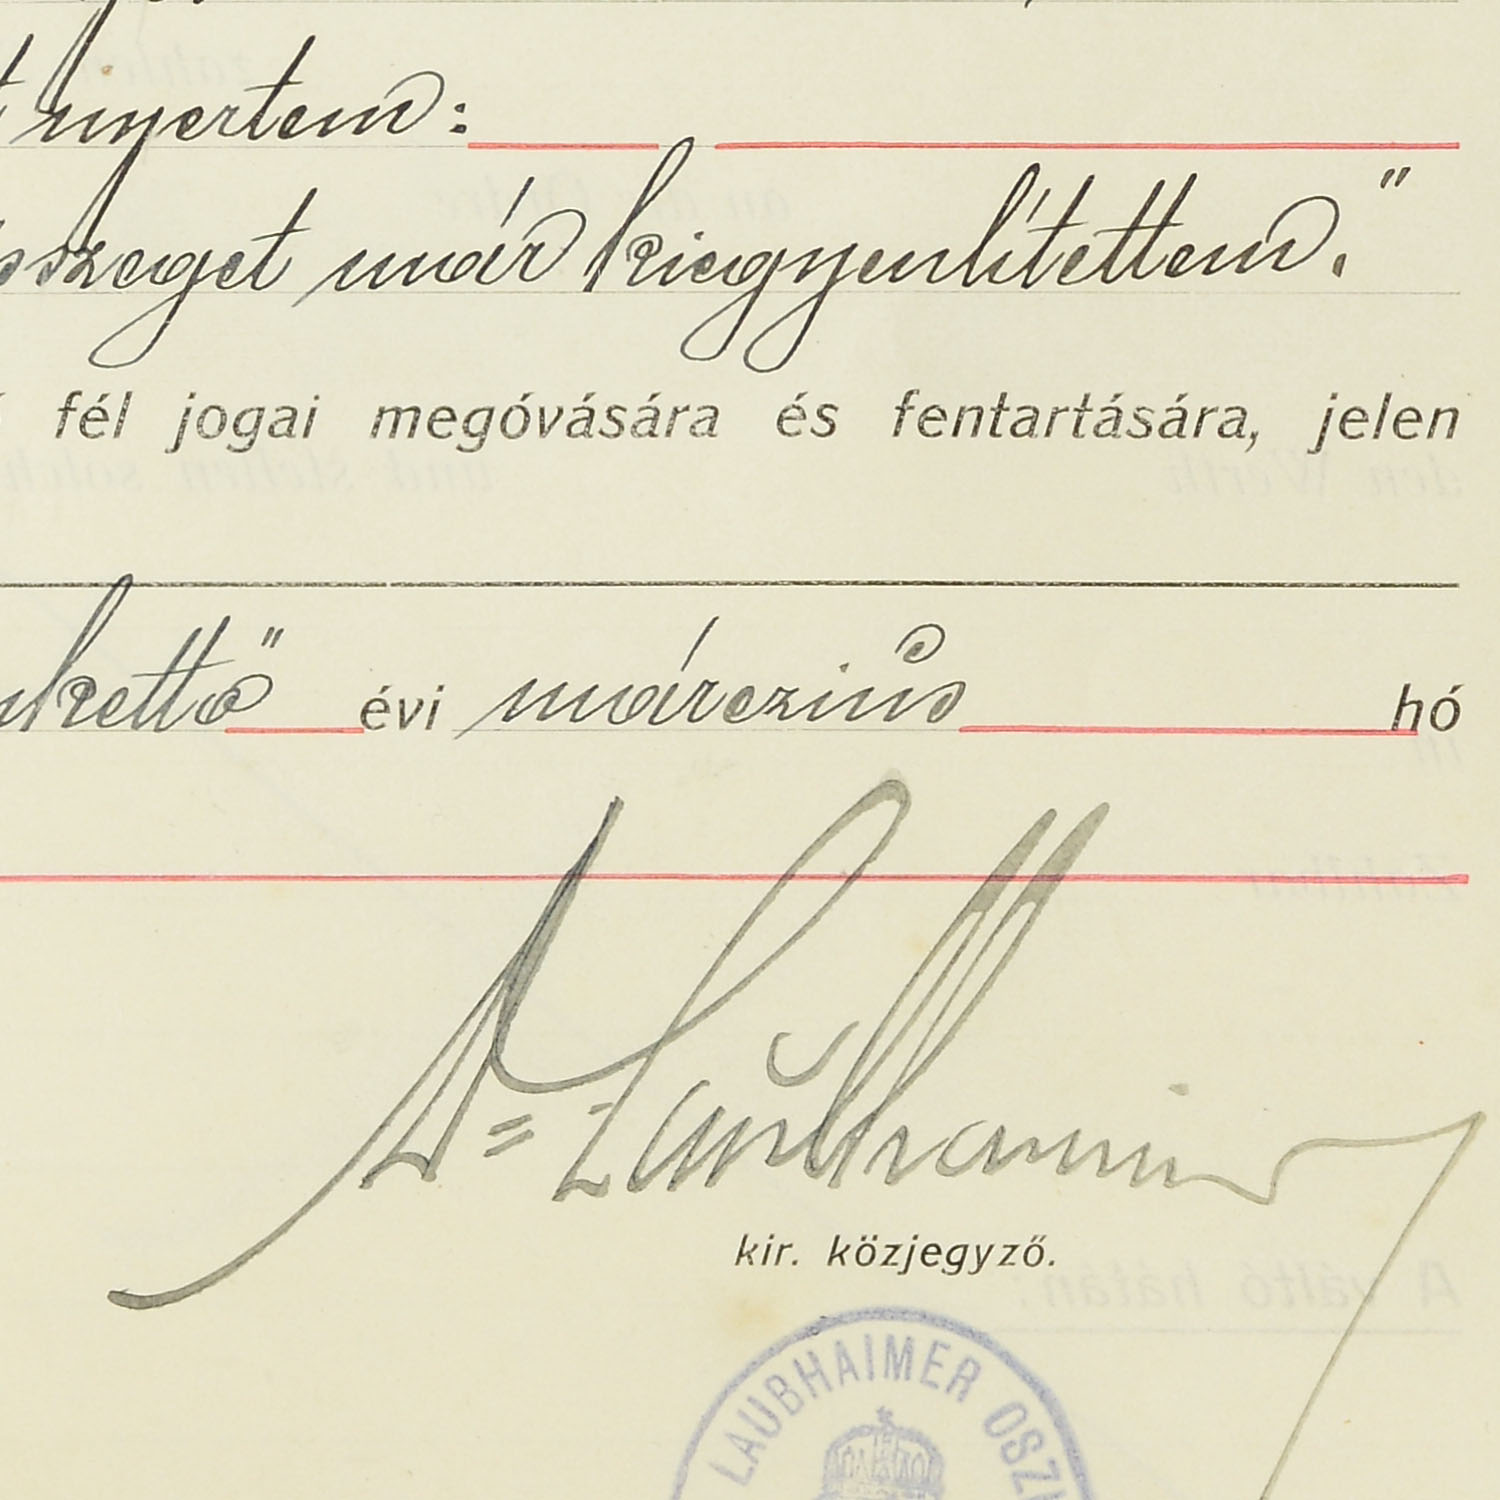 nyertem:
sszeget már kiegyenlítettem."
fél jogai megóvására és fentartására, jelen
kettő évi márczius hó
Dr Laubhaimer
kir. közjegyző.
LAUBHAIMER OSZ
A váltó hátán: